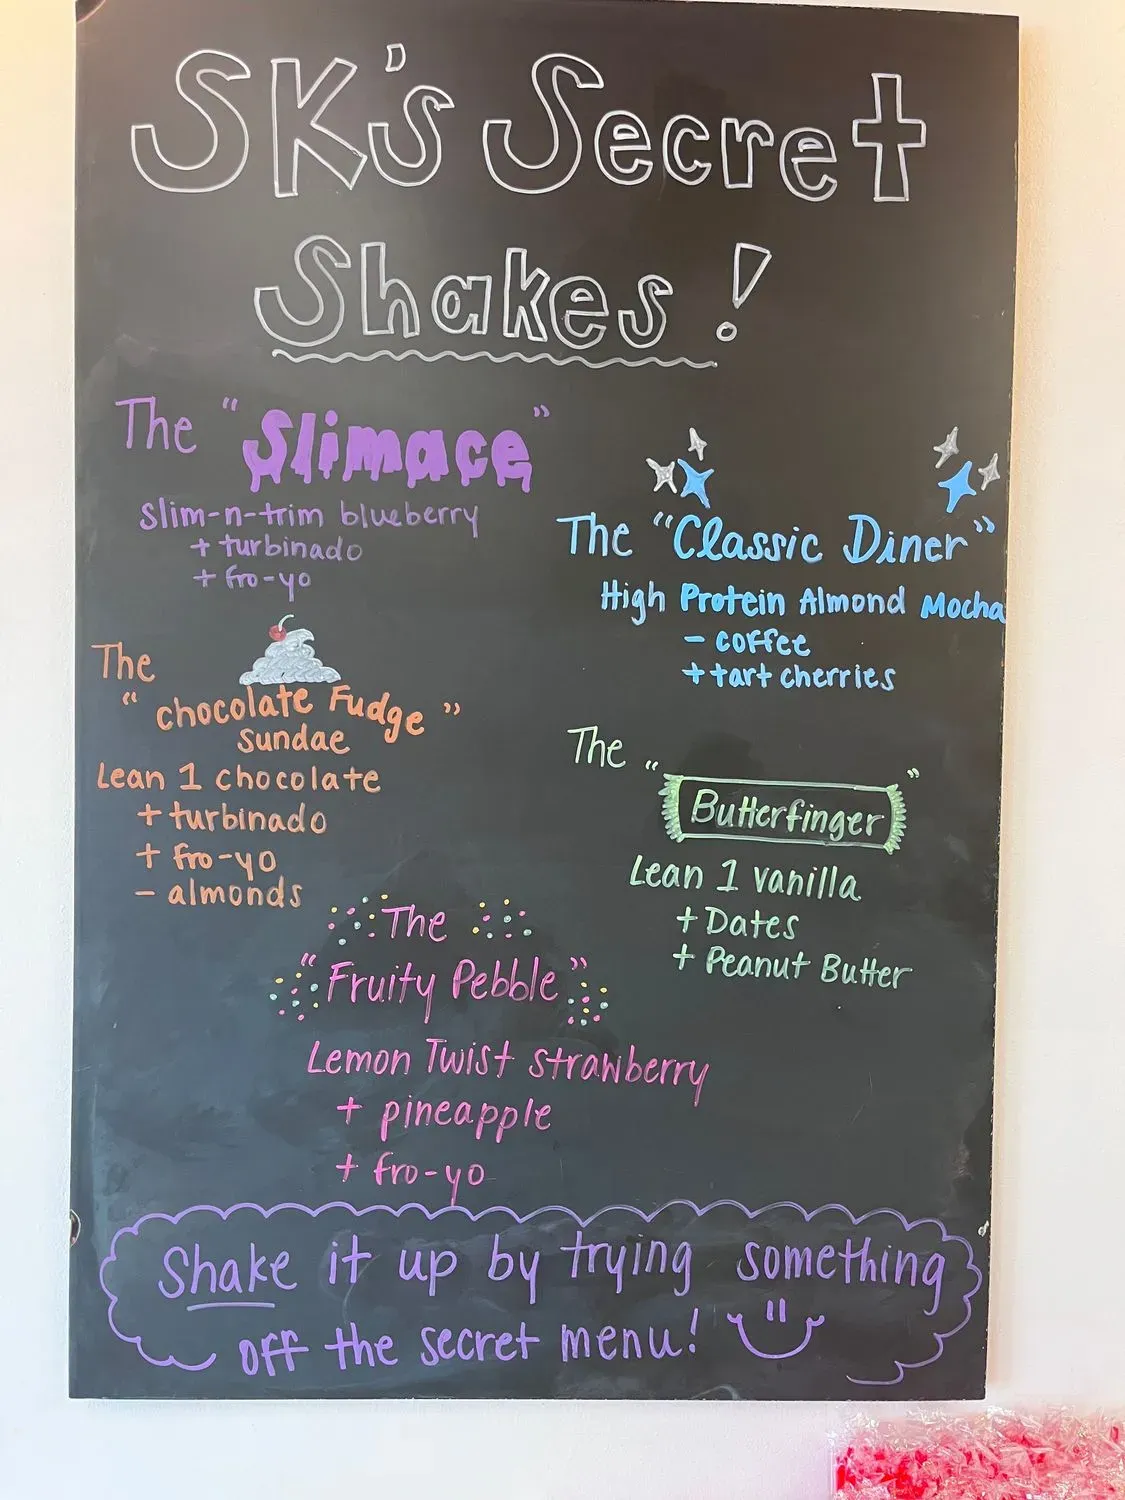 SK's Secret
Shakes!
The "Slimace"
Slim-n-trim blueberry
+ turbinado
+ fro-yo
The "Classic Diner"
High Protein Almond Mocha
- coffee
+ tart cherries
The
"chocolate Fudge"
sundae
Lean 1 chocolate
+ turbinado
+ fro-yo
- almonds
The "
Butterfinger"
Lean 1 vanilla
+ Dates
+ Peanut Butter
The
"Fruity Pebble"
Lemon Twist strawberry
+ pineapple
+ fro-yo
Shake it up by trying something
off the secret menu!